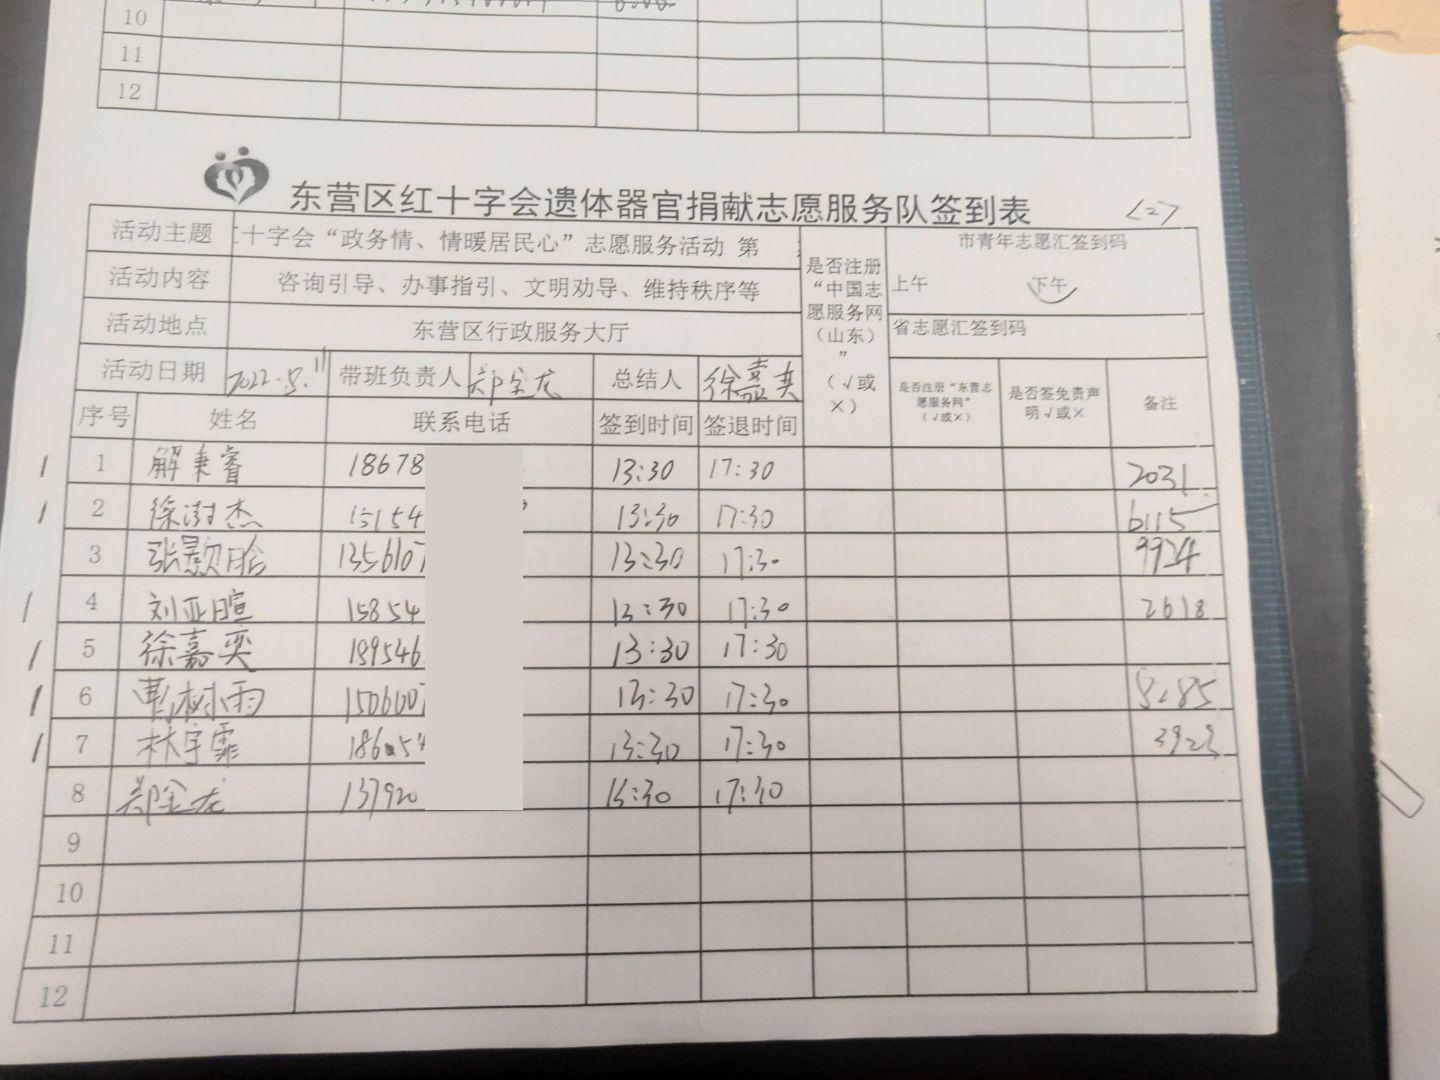 10
11
12
东营区红十字会遗体器官捐献志愿服务队签到表 <2>
活动主题 十字会“政务情、情暖居民心”志愿服务活动 第
是否注册“中国志愿服务网（山东）”（√或×）
市青年志愿汇签到码
上午 下午
省志愿汇签到码
活动内容 咨询引导、办事指引、文明劝导、维持秩序等
活动地点 东营区行政服务大厅
活动日期 2022.5.11 带班负责人 郑金龙 总结人 徐嘉奕
是否注册“东营志愿服务网”（√或×） 是否签免责声明√或× 备注
序号 姓名 联系电话 签到时间 签退时间
1 解秉睿 18678 13:30 17:30 2031
2 徐澍杰 15154 13:30 17:30 6115
3 张颢晗 135610 13:30 17:30 9924
4 刘亚暄 15854 13:30 17:30 2618
5 徐嘉奕 189546 13:30 17:30
6 树雨 150600 13:30 17:30 5285
7 林宇霏 13:30 17:30
8 郑金龙 137920 13:30 17:30
9
10
11
12